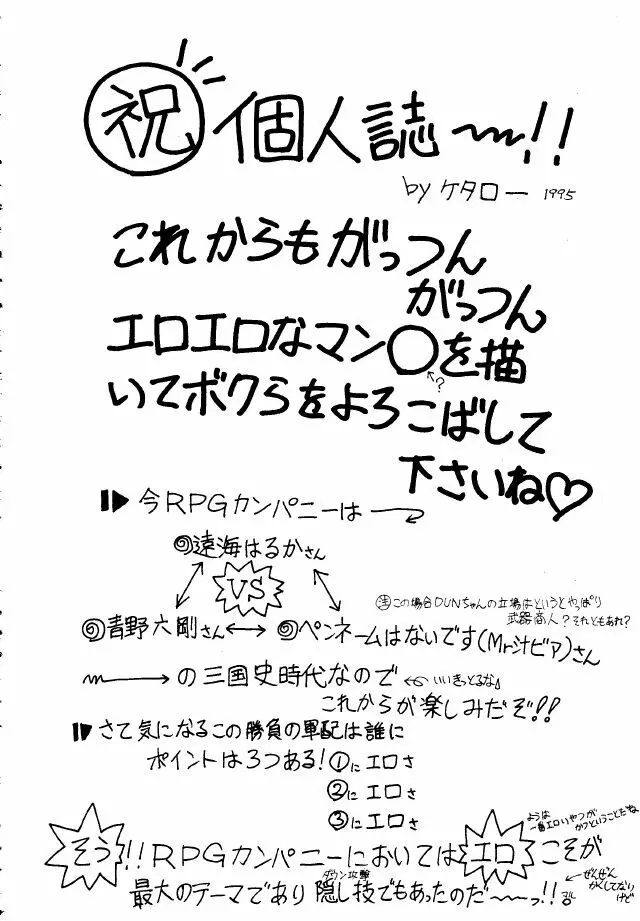 祝 個人誌〜!!
by ケタロー 1995
これからもがっつん
がっつん
エロエロなマン◯を描
?
いてボクらをよろこばして
下さいね♡
今RPGカンパニーは
遠海はるかさん
VS
注この場合DUNちゃんの立場はというとやっぱり
武器商人?それともあれ?
青野六剛さん↔ペンネームはないです(Mr.汁ビア)さん
→の三国史時代なので
←いいきっとるな
これからが楽しみだぞ!!
さて気になるこの勝負の軍配は誰に
ポイントは3つある!①にエロさ
②にエロさ
③にエロさ
ようは
一番エロいやつが
かつということだね
そう!!RPGカンパニーにおいてはエロこそが
ダウン攻撃
最大のテーマであり隠し技でもあったのだ〜っ!!
←ぜんぜん
かくしてない
けど